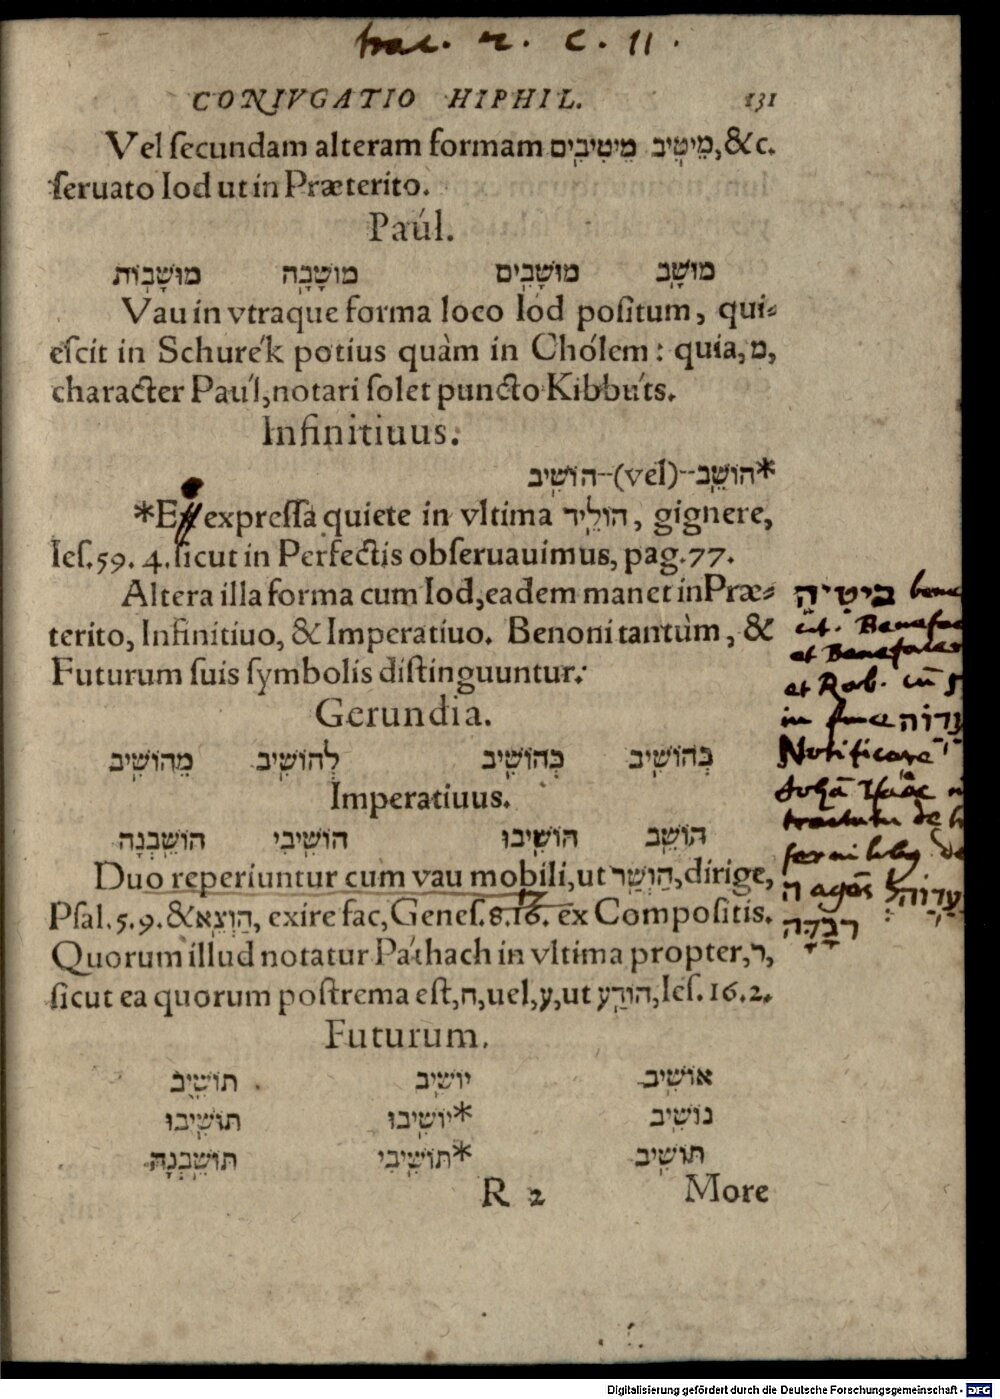 trac. 2. c. 11.
CONJVGATIO HIPHIL. 131
Vel ſecundam alteram formam מֵיטִיב מיטִיבִים, &c.
ſeruato Iod ut in Præterito.
Paúl.
מוּשָׁב מוּשָׁבִים מוּשָׁבָה מוּשָׁבוֹת
Vau in vtraque forma loco Iod poſitum, qui-
eſcit in Schurék potius quàm in Chólem: quia, מ,
character Paúl, notari ſolet puncto Kibbúts.
Infinitiuus.
*הוֹשֵׁב--(vel)--הוֹשִׁיב
*E expreſſa quiete in vltima הוֹלֵיד, gignere,
Ieſ. 59. 4. ſicut in Perfectis obſeruauimus, pag. 77.
Altera illa forma cum Iod, eadem manet in Præ-
terito, Infinitiuo, & Imperatiuo. Benoni tantùm, &
Futurum ſuis ſymbolis diſtinguuntur.
Gerundia.
בְּהוֹשִׁיב כְּהוֹשִׁיב לְהוֹשִׁיב מֵהוֹשִׁיב
Imperatiuus.
הוֹשֵׁב הוֹשִׁיבוּ הוֹשִׁיבִי הוֹשֵׁבְנָה
Duo reperiuntur cum vau mobili, ut הַוְשַׁר, dirige,
Pſal. 5. 9. & הַוְצֵא, exire fac, Geneſ. 8. 16. ex Compoſitis.
17
Quorum illud notatur Páthach in vltima propter, ר,
ſicut ea quorum poſtrema eſt, ח, uel, ע, ut הוֹדַע, Ieſ. 16. 2.
Futurum.
אוֹשִׁיב יוֹשִׁיב תוֹשִׁיב
נוֹשִׁיב *יוֹשִׁיבוּ תוֹשִׁיבוּ
תוֹשִׁיב *תוֹשִׁיבִי תוֹשֵׁבְנָה
R 2 More
Benefac
et Benefaces
et Rab.
in fine
Notificare
tractatu de
Digitalisierung gefördert durch die Deutsche Forschungsgemeinschaft - DFG